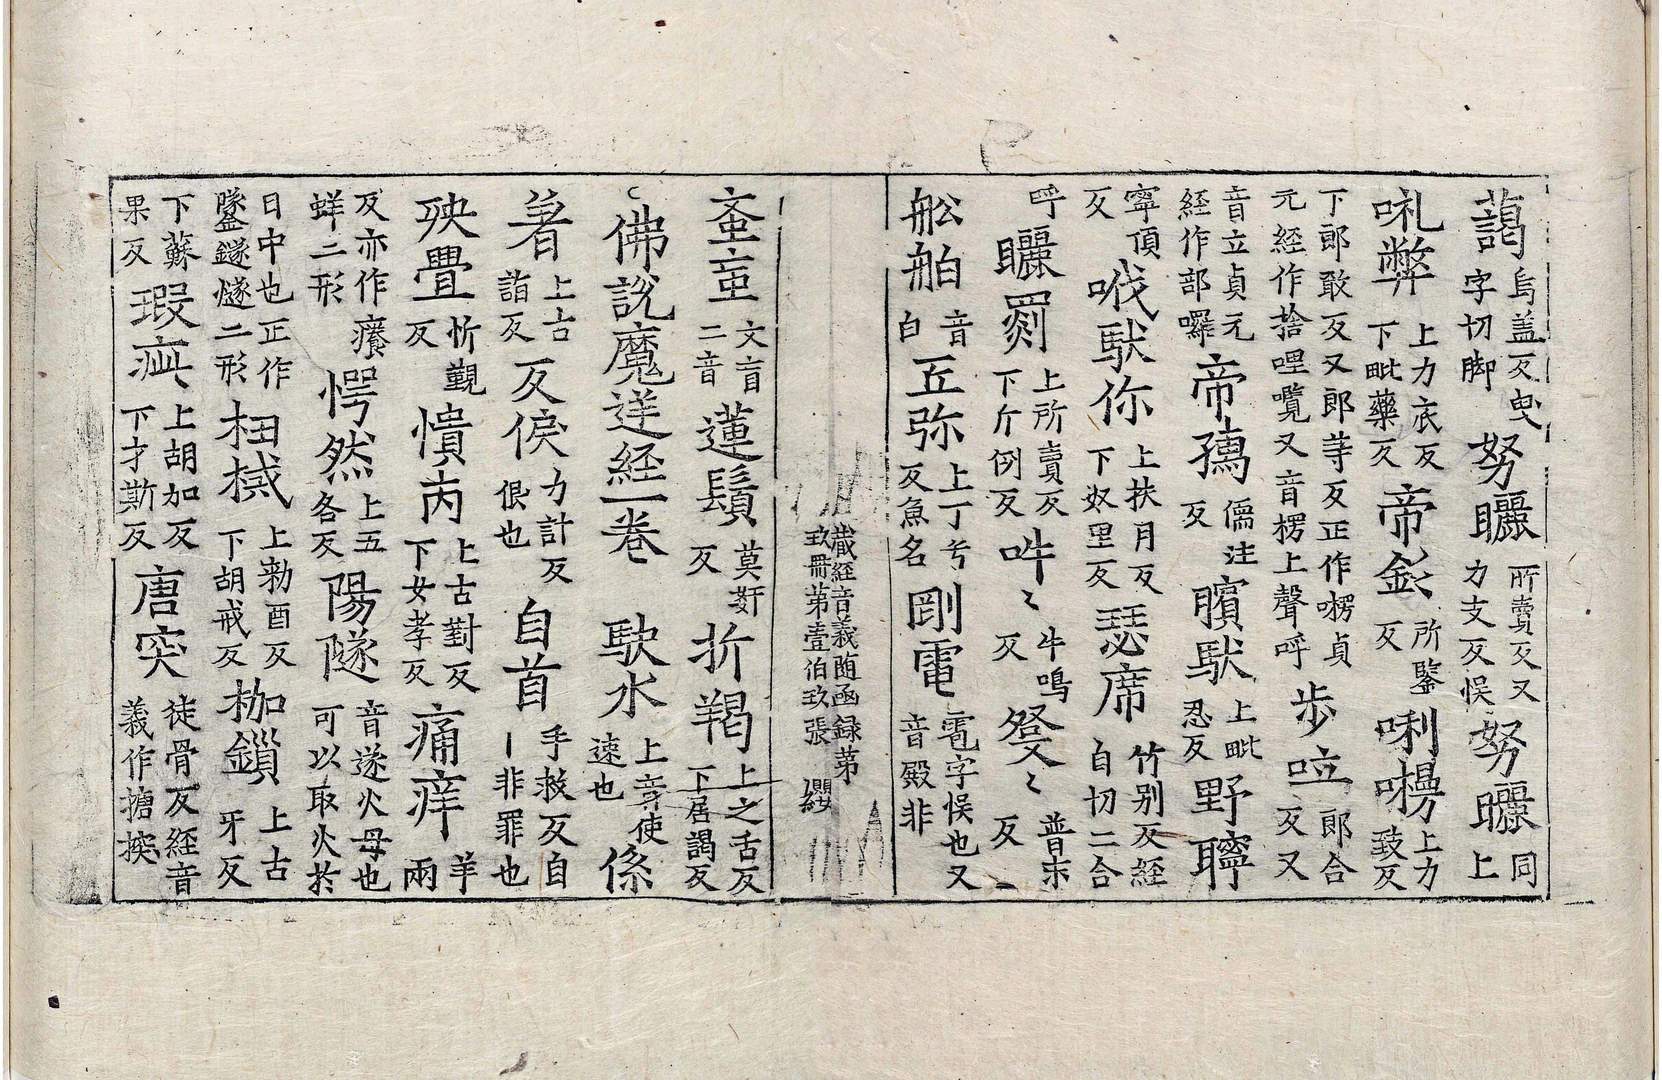 藹烏盖反曳字切脚努曬所賣反又力支反悮努曬同上
𠲔弊上力衣反下毗藥反帝釤所鑒反唎㘄上力致反
下郎敢反又郎等反正作㘄貞元經作捨哩嚂又音楞上聲呼歩㕸郎合反又
音立貞元經作部囉帝孺儒注反臏馱上毗忍反野聹
寧頂反㕹馱你上扶月反下奴里反瑟席竹别反經自切二合
呼曬罽上所賣反下斤例反吽〻牛鳴反癹〻普末反一
舩舶音白互弥上丁兮反魚名剛電雹字悮也又音殿非
藏經音義随函録第玖冊第壹伯玖張 纓
蚉䖟文盲二音蓮鬚莫姧反折羯上之舌反下居謁反
佛說魔逆經一卷 駃水上音使速也係
著上古詣反反戾力計反佷也自首手救反自丨非罪也
殃舋忻覲反憒丙上古對反下女孝反痛痒羊兩
反亦作癢蛘二形愕然上五各反陽隧音遂火母也可以取火於
日中也正作鐆燧二形杻械上勑酉反下胡戒反枷鎖上古牙反
下蘇果反瑕疵上胡加反下才斯反唐突徒骨反經音義作搪揬